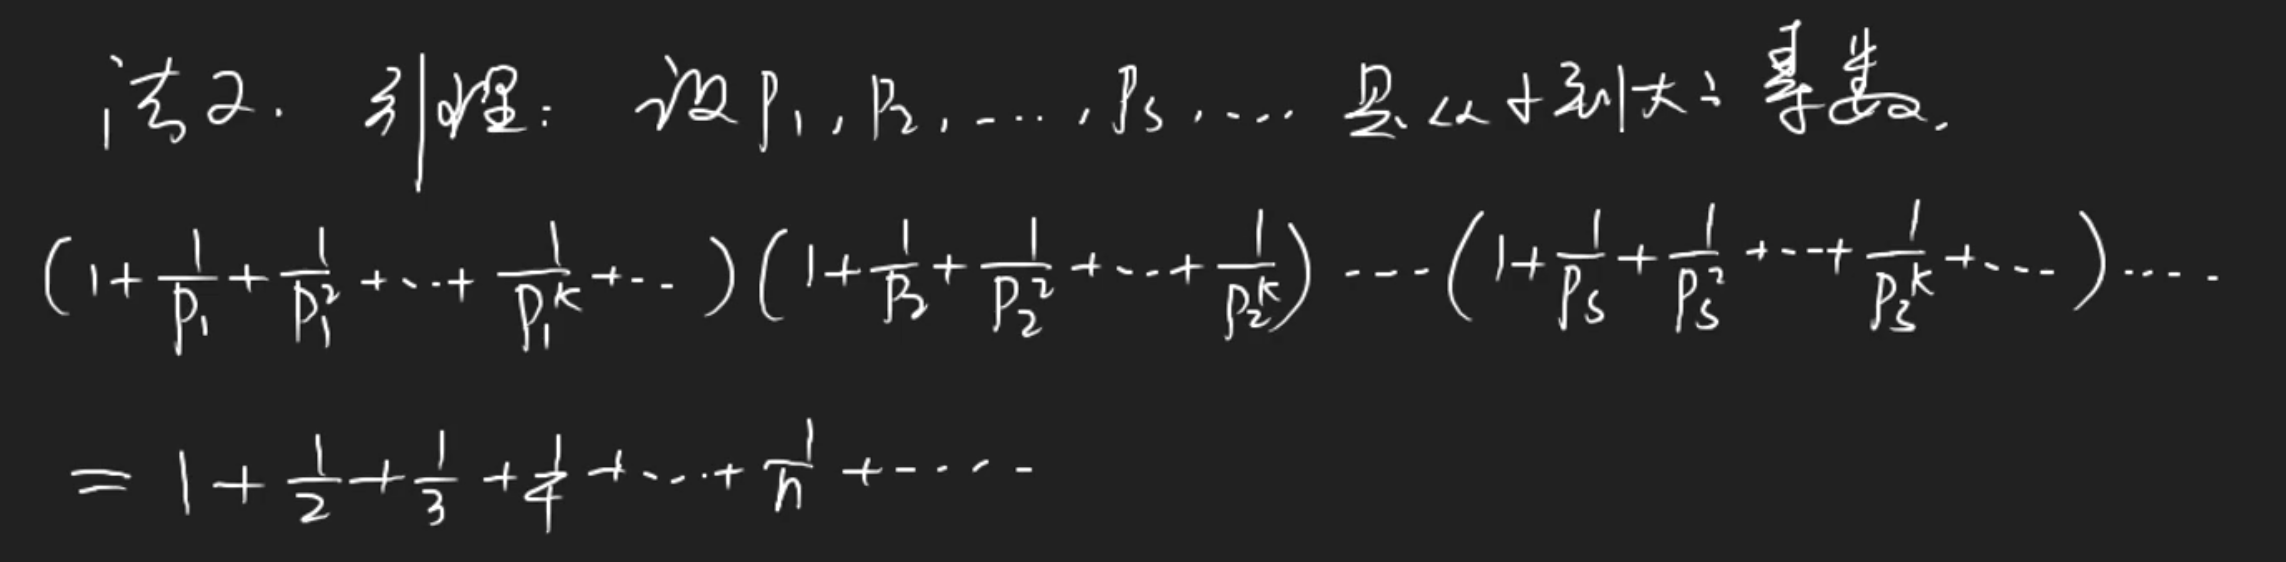 法2. 引理: 设 p₁, p₂, ..., pₛ, ... 是从小到大之素数.
(1+1/p₁+1/p₁²+...+1/p₁ᵏ+...)(1+1/p₂+1/p₂²+...+1/p₂ᵏ)....(1+1/pₛ+1/pₛ²+...+1/pₛᵏ+...)....
= 1+1/2+1/3+1/4+...+1/n+....